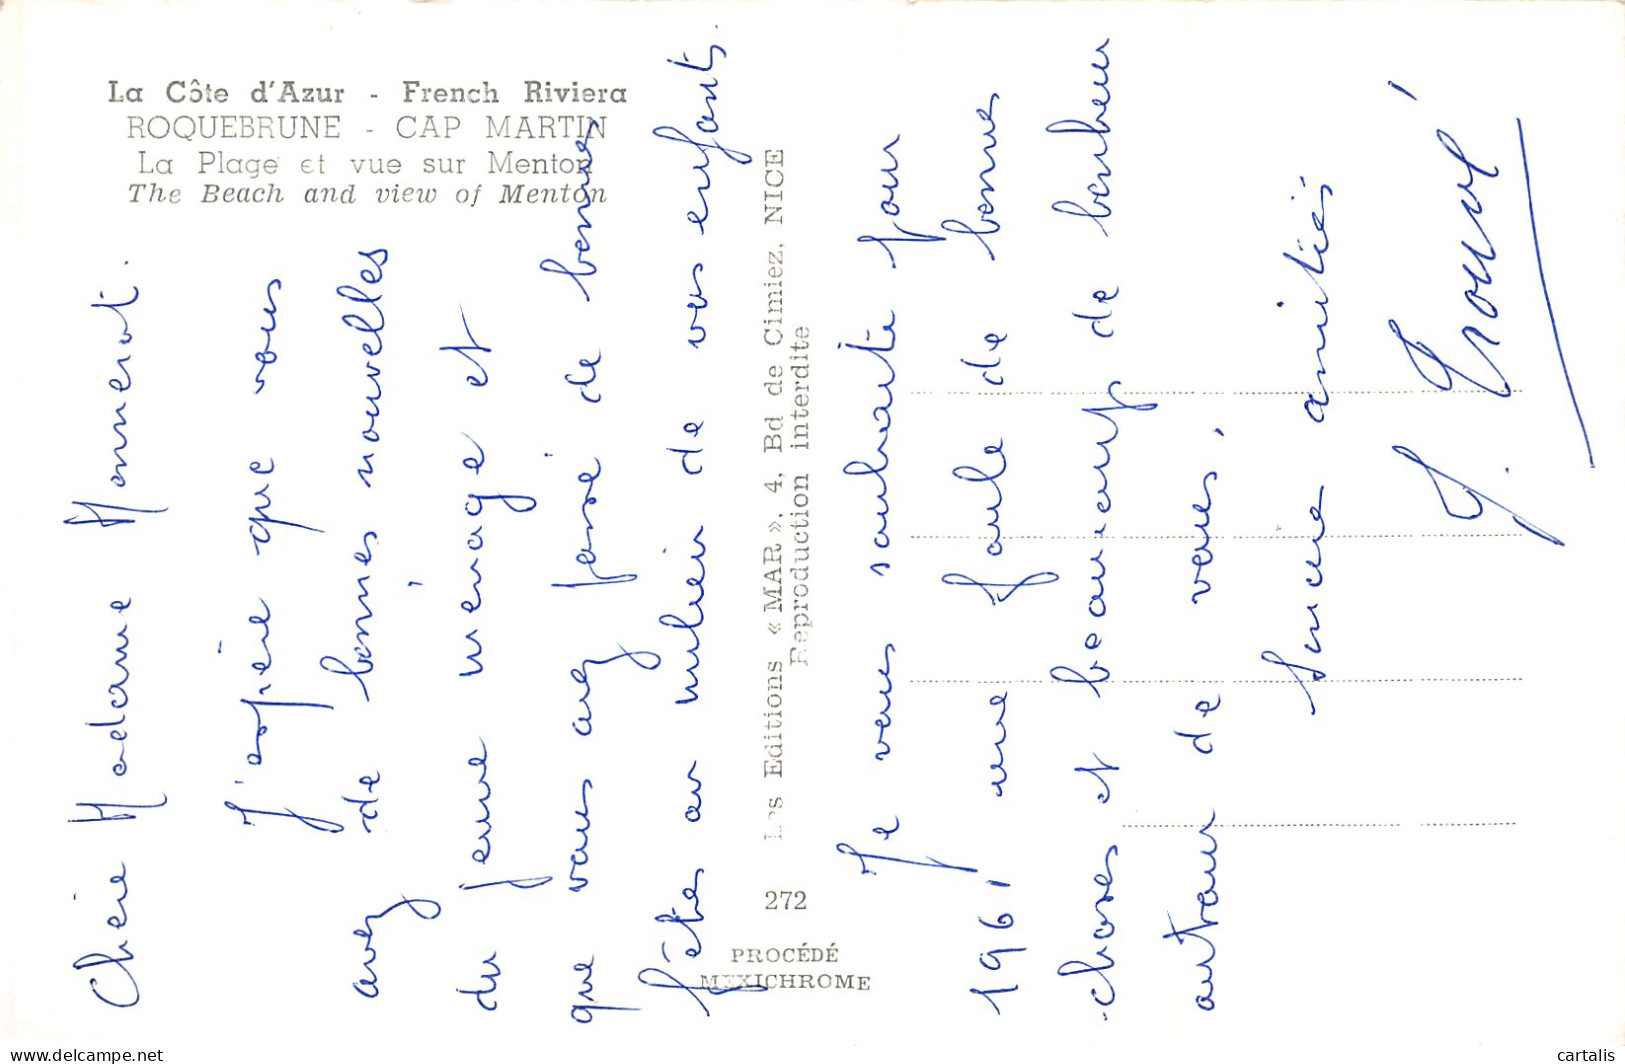 La Côte d'Azur - French Riviera
ROQUEBRUNE - CAP MARTIN
La Plage et vue sur Menton
The Beach and view of Menton
Les Editions « MAR », 4, Bd de Cimiez, NICE
Reproduction interdite
272
PROCÉDÉ
MEXICHROME
Chère Madame
J'espère que vous
avez de bonnes nouvelles
du jeune ménage et
que vous avez passé de bonnes
fêtes au milieu de vos enfants.
Je vous souhaite pour
1961 une foule de bonnes
choses et beaucoup de bonheur
autour de vous,
amitiés
J.
cartalis
www.delcampe.net